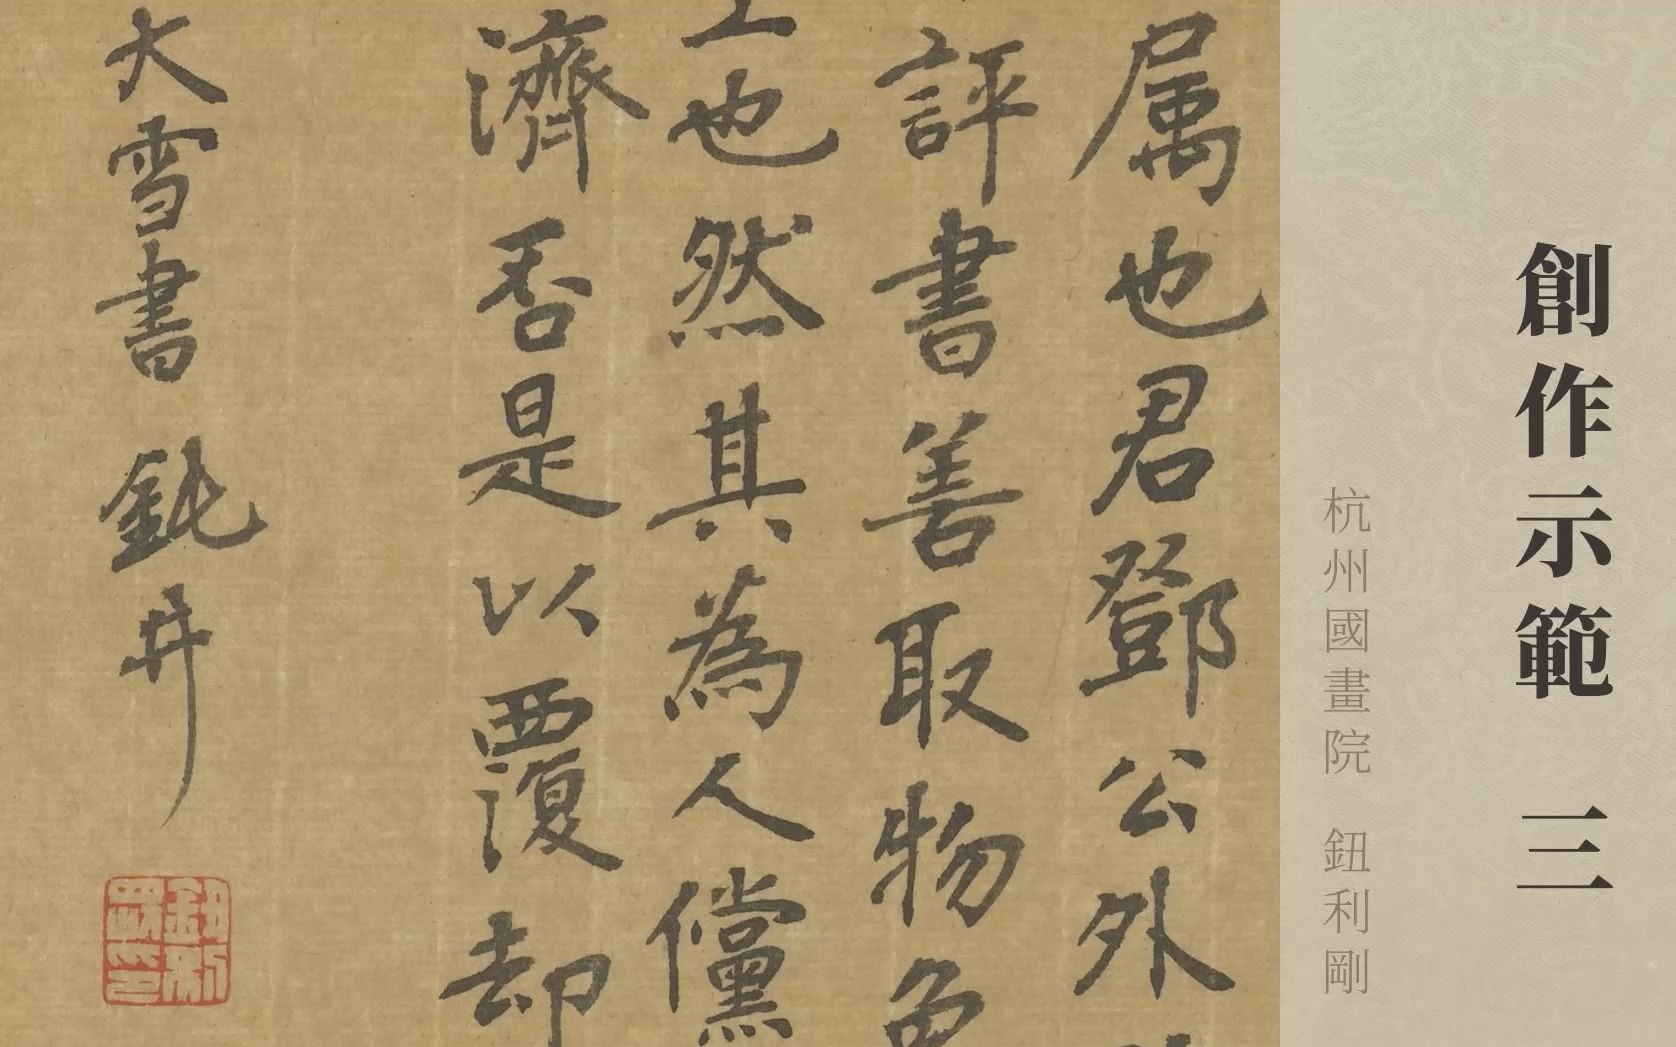 創作示範 三
杭州國畫院 鈕利剛
属也君鄧公外
評書善取物色
上也然其為人儻
濟否是以覆却
大雪書 鈍井
鈕利剛印